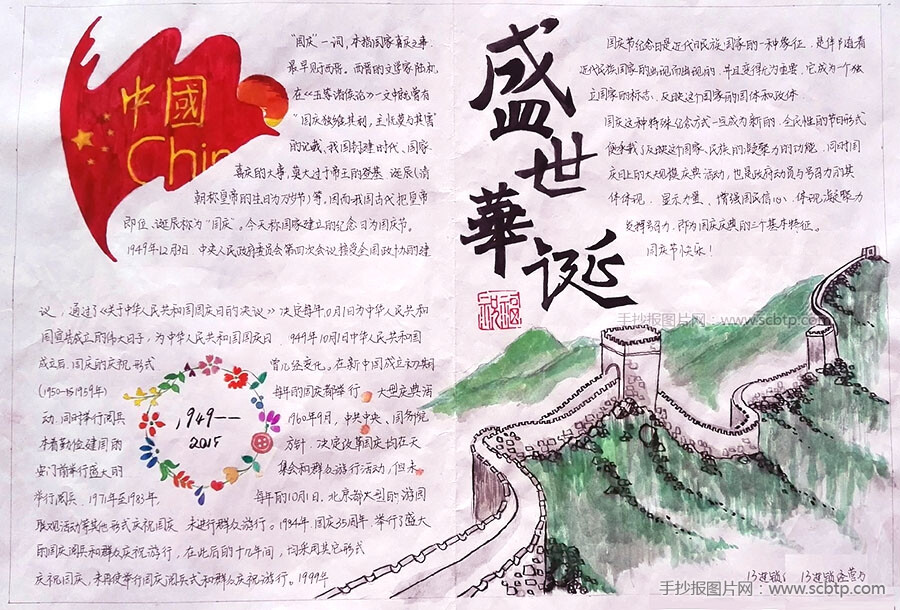 中國
China
"国庆"一词,本指国家喜庆之事、
最早见于西晋。西晋的文学家陆机
在《五等诸侯论》一文中就曾有
"国庆独飨其利,主忧莫与其害"
的记载、我国封建时代、国家
喜庆的大事,莫大过于帝王的登基、诞辰(清
朝称皇帝的生日为万岁节)等,因而我国古代把皇帝
即位、诞辰称为"国庆"。今天称国家建立的纪念日为国庆节。
1949年12月3日,中央人民政府委员会第四次会议接受全国政协的建
议,通过了《关于中华人民共和国国庆日的决议》决定每年10月1日为中华人民共和
国宣告成立的伟大日子,为中华人民共和国国庆日、949年10月1日中华人民共和国
成立后,国庆的庆祝形式 曾几经变化。在新中国成立初期
(1950-1959年) 每年的国庆都举行 大型庆典活
动,同时举行阅兵 1960年9月,中共中央、国务院
本着勤俭建国的 方针,决定改革国庆
安门前举行盛大的 集会和群众游行活动,但未
举行阅兵、1971年至1983年, 每年的10月1日,北京都大型的游园
联欢活动等其他形式庆祝国庆、未进行群众游行。1984年,国庆35周年,举行了盛大
的国庆阅兵和群众庆祝游行,在此后的十几年间,均采用其它形式
庆祝国庆,未再使举行国庆阅兵式和群众庆祝游行。1999年
1949——
2015
盛世華诞
国庆节纪念日是近代民族国家的一种象征,是伴随着
近代民族国家的出现而出现的,并且变得尤为重要、它成为一个独
立国家的标志、反映这个国家的国体和政体
国庆这种特殊纪念方式一旦成为新的、全民性的节日形式
便承载了反映这个国家、民族的凝聚力的功能、同时国
庆日上的大规模庆典活动,也是政府动员与号召力的具
体体现、显示力量、增强国民信心,体现凝聚力
发挥号召力,即为国庆庆典的三个基本特征。
国庆节快乐!
手抄报图片网:www.scbtp.com
手抄报图片网:www.scbtp.com